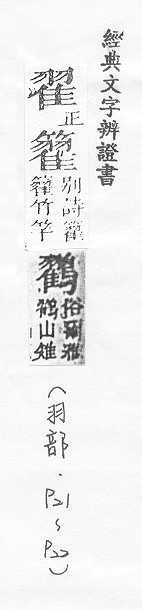 經典文字辨證書
翟正
籊別詩籊
籊竹竿
鸐俗爾雅
鸐山雉
(羽部．P21~P22)